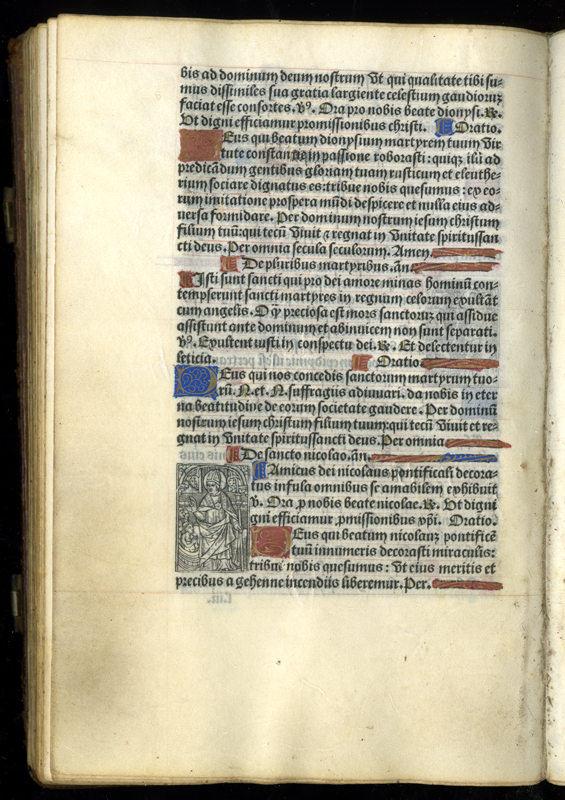 bis ad dominum deum nostrum Ut qui qualitate tibi su-
mus dissimiles sua gratia largiente celestium gaudioruꝫ
faciat esse consortes. ℣. Ora pro nobis beate dionysi. ℟.
Ut digni efficiamur promissionibus christi. Oratio.
Eus qui beatum dionysium martyrem tuum vir
tute constantie in passione roborasti: quiqꝫ illi ad
predicādum gentibus gloriam tuam rusticum et eleuthe-
rium sociare dignatus es: tribue nobis quesumus: ex eo-
rum imitatione prospera mūdi despicere et nulla eius ad-
uersa formidare. Per dominum nostrum iesum christum
filium tuū: qui tecū viuit ⁊ regnat in vnitate spiritussan
cti deus. Per omnia secula seculorum. Amen.
De pluribus martyribus. ān.
Isti sunt sancti qui pro dei amore minas hominū con-
tempserunt sancti martyres in regnum celorum exultāt
cum angelis. O ꝙ preciosa est mors sanctoruꝫ qui assidue
assistunt ante dominum et abinuicem non sunt separati.
℣. Exultent iusti in conspectu dei. ℟. Et delectentur in
leticia. Oratio.
Eus qui nos concedis sanctorum martyrum tuo-
rū. N. et. N. suffragiis adiuuari. da nobis in eter
na beatitudine de eorum societate gaudere. Per dominū
nostrum iesum christum filium tuum: qui tecū viuit et re-
gnat in vnitate spiritussancti deus. Per omnia
De sancto nicolao. ān.
Amicus dei nicolaus pontificali decora-
tus infula omnibus se amabilem exhibuit
℣. Ora ꝓ nobis beate nicolae. ℟. Ut digni
gni efficiamur ꝓmissionibus xp̄i. Oratio.
Eus qui beatum nicolauꝫ pontificē
tuū innumeris decorasti miraculis:
tribue nobis quesumus: vt eius meritis et
precibus a gehenne incendiis liberemur. Per.